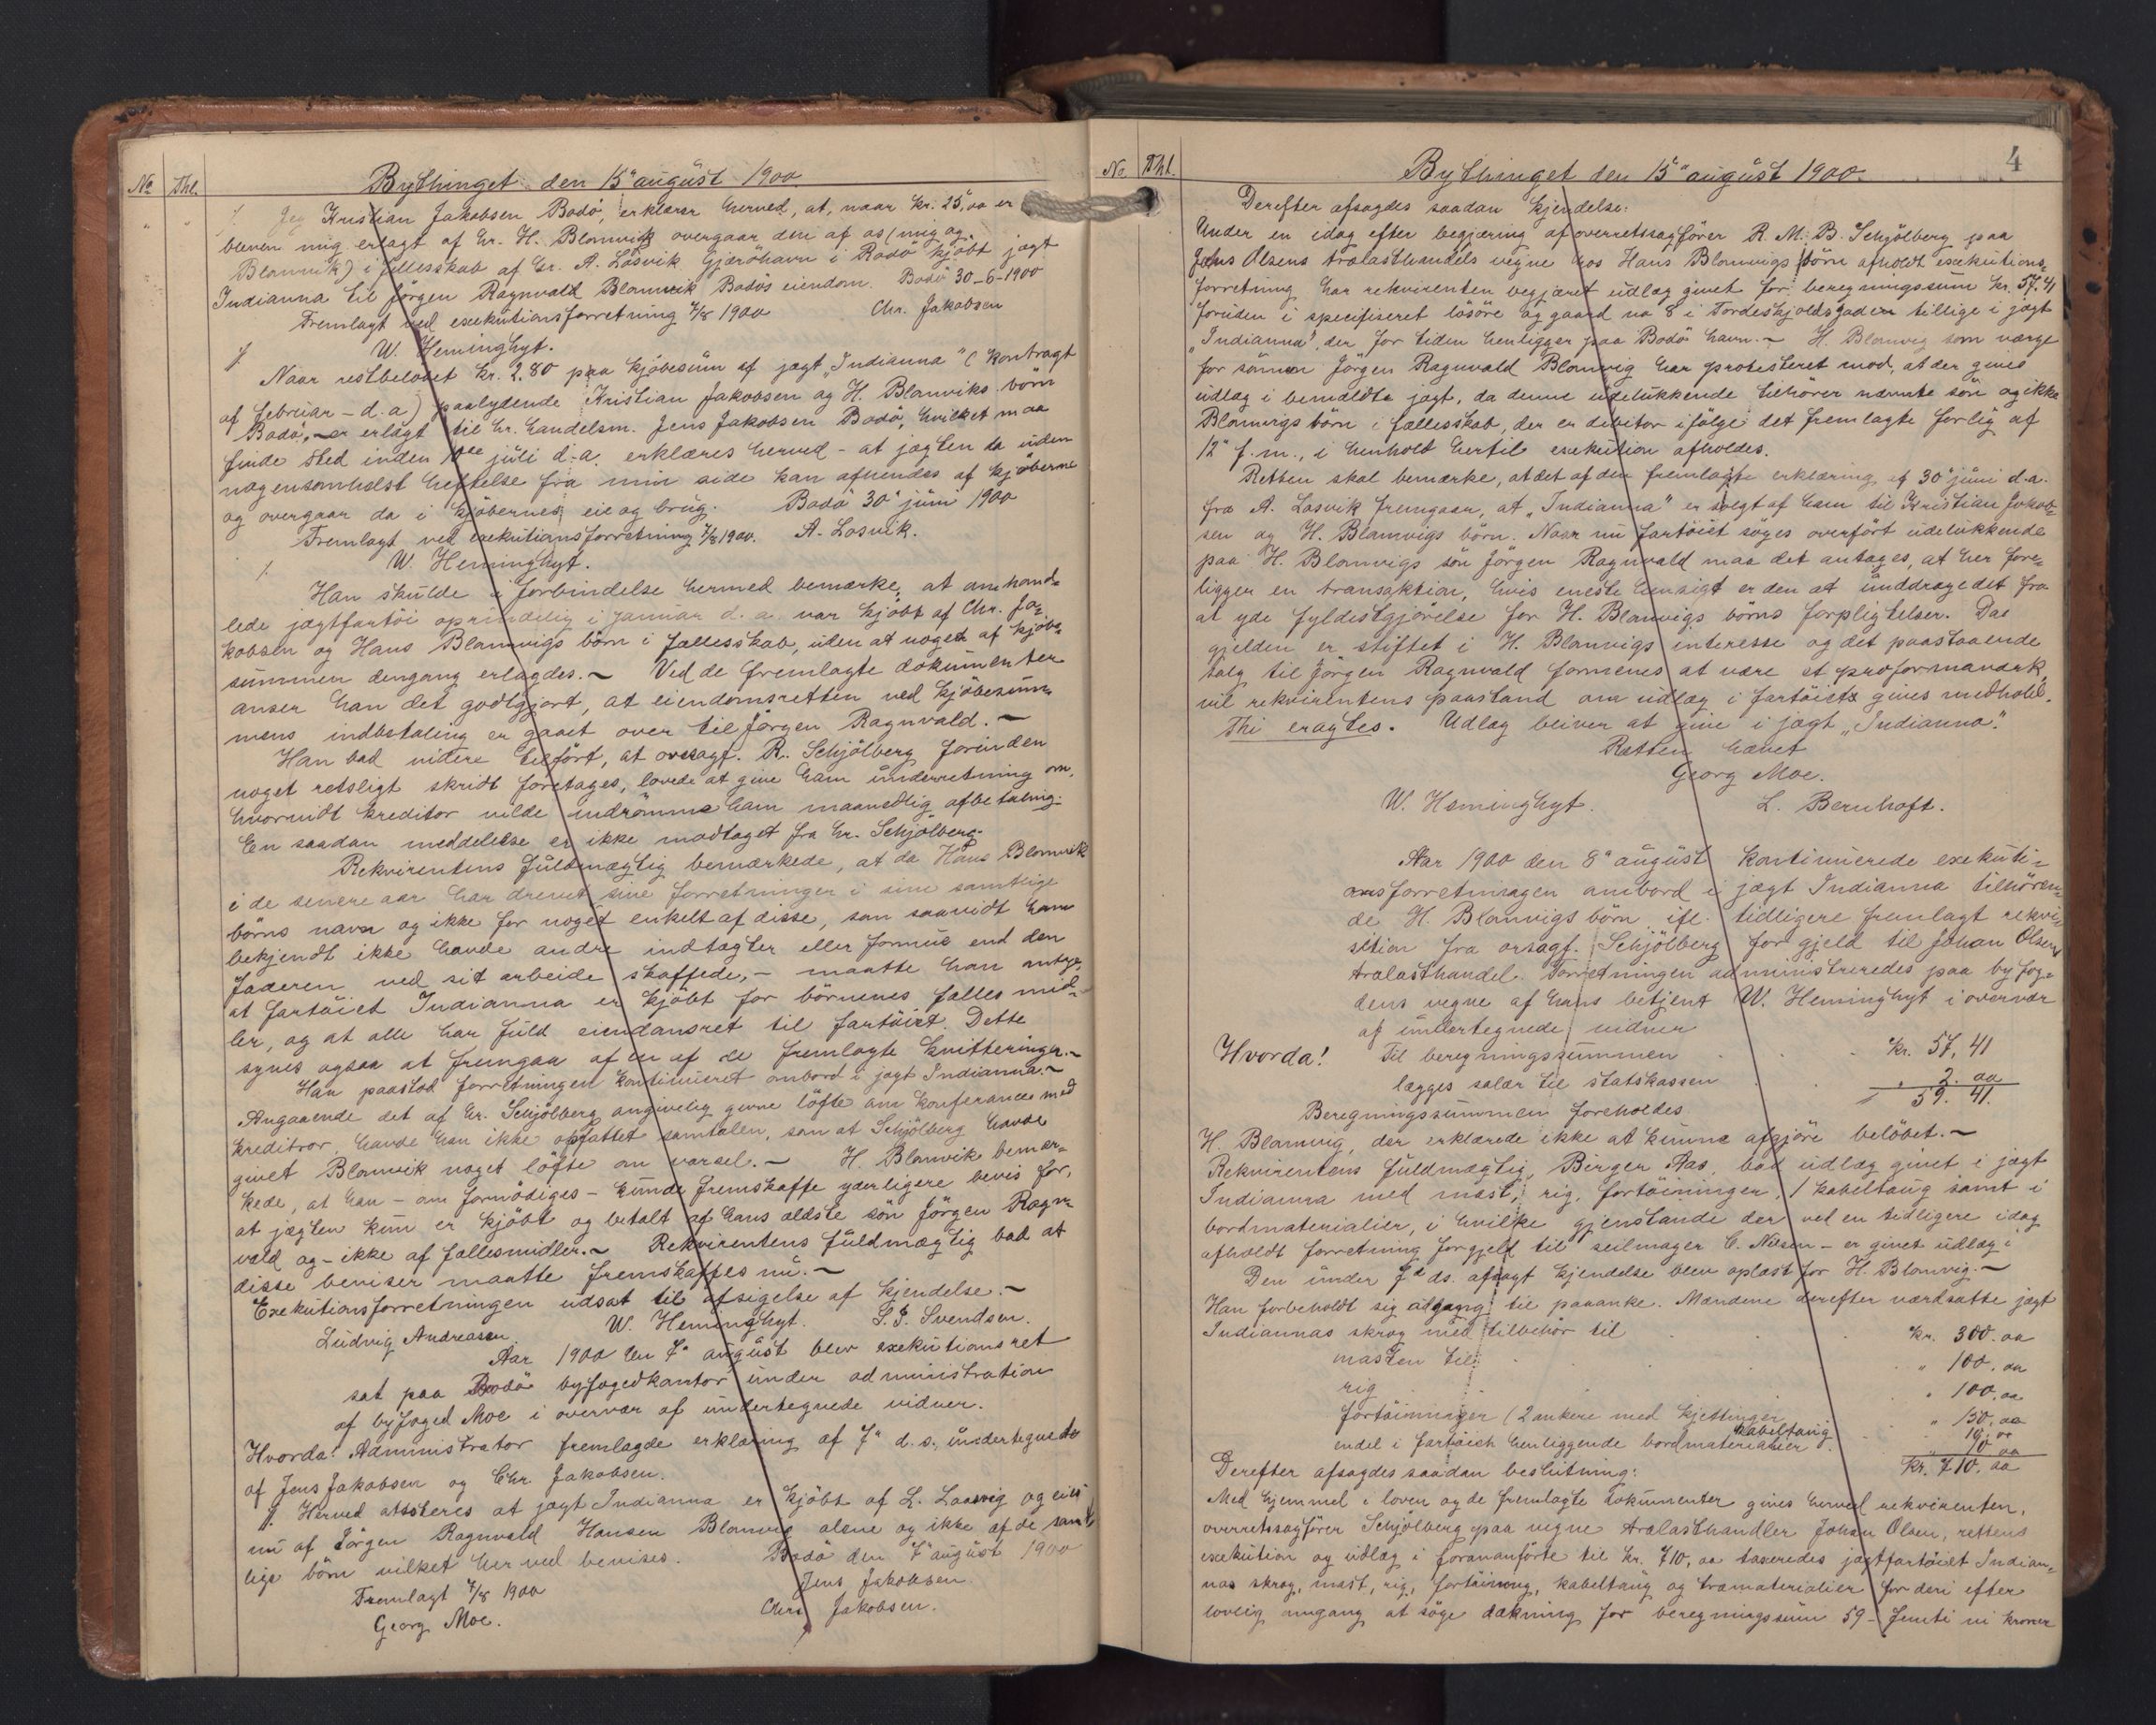 No Thl. Bythinget den 15de august 1900.
" " /. Jeg Kristian Jakobsen Bodö, erklærer herved, at, naar kr. 25,00 er
bleven mig erlagt af hr. H. Blomvik overgaar den af os (mig og
Blomvik) i fællesskab af hr. A. Lösvik Gjæröhavn i Rödö kjöbt jagt
Indianna til Jörgen Ragnvald Blomvik Bodös eiendom. Bodö 30-6-1900
Fremlagt ved exekutionsforretning 7/8 1900 Chr. Jakobsen
W. Heminghyt.
/. Naar restbelöbet kr. 2.80 paa kjöbesum af jagt „Indianna" (kontragt
af februar - d.a) paalydende Kristian Jakobsen og H. Blomviks börn
Bodö, - er erlagt til hr. handelsm. Jens Jakobsen Bodö, hvilket maa
finde sted inden 10de juli d.a. erklæres herved - at jagten da uden
nogensomhelst heftelse fra min side kan afhendes af kjöberne
og overgaar da i kjöbernes eie og brug. Bodö 30' juni 1900
Fremlagt ved exekutionsforretning 7/8 1900. A. Losvik.
/. W. Heminghyt.
Han skulde i forbindelse hermed bemærke, at omhand-
lede jagtfartöi oprindelig i januar d.a. var kjöbt af Chr. Ja-
kobsen og Hans Blomvigs börn i fællesskab, uden at noget af kjöbe-
summen dengang erlagdes. - Ved de fremlagte dokumenter
anser han det godtgjort, at eiendomsretten ved kjöbesum-
mens indbetaling er gaaet over til Jörgen Ragnvald. -
Han bad videre tilfört, at ovrsagf. R. Schjölberg forinden
noget retsligt skridt foretages, lovede at give ham underretning om,
hvorvidt kreditor vilde indrömme ham maanedlig afbetaling.
En saadan meddelelse er ikke modtaget fra hr. Schjölberg.
Rekvirentens fuldmægtig bemærkede, at da Hans Blomvik
i de senere aar har drevet sine forretninger i sine samtlige
börns navn og ikke for noget enkelt af disse, som saavidt ham
bekjendt ikke havde andre indtægter eller formue end den
faderen ved sit arbeide skaffede, - maatte han antage,
at fartöiet Indianna er kjöbt for börnenes fælles mid-
ler, og at alle har fuld eiendomsret til fartöiet. Dette
synes ogsaa at fremgaa af en af de fremlagte kvitteringer. -
Han paastod forretningen kontinueret ombord i jagt Indianna. -
Angaaende det af hr. Schjölberg angivelig givne löfte om konferance med
kreditor, havde han ikke opfattet samtalen, som at Schjölberg havde
givet Blomvik noget löfte om varsel. - H. Blomvik bemær-
kede, at han - om fornödiges - kunde fremskaffe yderligere bevis for,
at jagten kun er kjöbt og betalt af hans ældste sön Jörgen Ragn-
vald og - ikke af fællesmidler. - Rekvirentens fuldmægtig bad at
disse beviser maatte fremskaffes nu. -
Exekutionsforretningen udsat til afsigelse af kjendelse. -
Ludvig Andreasen. W. Heminghyt. S. J. Svendsen.
Aar 1900 den 7de august blev exekutionsret
sat paa Bodö byfogedkontor under administration
af byfoged Moe i overvær af undertegnede vidner.
Hvorda! Administrator fremlagde erklæring af 7de d.s. undertegnede
af Jens Jakobsen og Chr. Jakobsen.
/. Herved attsteres at jagt Indianna er kjöbt af L. Laasvig og eies
nu af Jörgen Ragnvald Hansen Blomvig alene og ikke af de samt-
lige börn vilket her ved bevises. Bodö den 7de august 1900
Fremlagt 7/8 1900 Jens Jakobsen
Georg Moe. Chr. Jakobsen.
No Thl. Bythinget den 15de august 1900. 4
Derefter afsagdes saadan kjendelse:
Under en idag efter begjæring af overretssagförer R. M. B. Schjölberg paa
Johs Olsens trælasthandels vegne hos Hans Blomvigs börn afholdt exekutions-
forretning har rekvirenten begjæret udlæg givet for beregningssum kr. 57.41
foruden i specifiseret lösöre og gaard no 8 i Tordeskjoldsgaden tillige i jagt
„Indianna", der for tiden henligger paa Bodö havn. - H. Blomvig som værge
for sönnen Jörgen Ragnvald Blomvig har protesteret mod, at der gives
udlæg i bemeldte jagt, da denne udelukkende tilhörer nævnte sön og ikke
Blomvigs börn i fællesskab, der er debitor ifölge det fremlagte forlig af
12' f.m., i henhold hertil exekution afholdes.
Retten skal bemærke, at det af den fremlagte erklæring af 30' juni d.a.
fra A. Losvik fremgaar, at „Indianna" er solgt af ham til Kristian Jakob-
sen og H. Blomvigs börn. Naar nu fartöiet söges overfört udelukkende
paa H. Blomvigs sön Jörgen Ragnvald maa det antages, at her fore-
ligger en transaktion, hvis eneste hensigt er den at unddrage det fra
at yde fyldestgjörelse for H. Blomvigs börns forpligtelser. Da
gjelden er stiftet i H. Blomvigs interesse og det paastaaende
salg til Jörgen Ragnvald formenes at være et proformaværk,
vil rekvirentens paastand om udlæg i fartöiet gives medhold.
Thi eragtes. Udlæg bliver at give i jagt „Indianna".
Retten hævet
Georg Moe.
W. Heminghyt. L. Bernhoft.
Aar 1900 den 8de august kontinuerede exekuti-
onsforretningen ombord i jagt Indianna tilhören-
de H. Blomvigs börn ifl. tidligere fremlagt rekvi-
sition fra orsagf. Schjölberg for gjeld til Johan Olsens
trælasthandel. Forretningen administreredes paa byfog-
dens vegne af hans betjent W. Heminghyt i overvær
af undertegnede vidner
Hvorda! Til beregningssummen kr. 57,41
lægges salær til statskassen " 2.00
59.41.
Beregningssummen foreholdes
H. Blomvig, der erklærede ikke at kunne afgjöre belöbet. -
Rekvirentens fuldmægtig, Birger Aas, bad udlæg givet i jagt
Indianna med mast, rig, fortöininger, 1 kabeltaug samt i
bordmaterialier, i hvilke gjenstande der ved en tidligere idag
afholdt forretning for gjeld til seilmager C. Nilsen - er givet udlæg i
Den under 7de ds. afsagt kjendelse blev oplæst for H. Blomvig. -
Han forbeholdt sig adgang til paaanke. Mændene derefter værdsatte jagt
Indiannas skrog med tilbehör til kr. 300.00
masten til " 100.00
rig " 100.00
fortöininger (2 ankere med kjettinger " 150.00
kabeltaug " 10.00
endel i fartöiet henliggende bordmaterialier " 10 00
Derefter afsagdes saadan beslutning: kr. 710.00
Med hjemmel i loven og de fremlagte dokumenter gives herved rekvirenten,
overretssagförer Schjölberg paa vegne trælasthandler Johan Olsen, rettens
exekution og udlæg i foranförte til kr. 710,00 taxeredes jagtfartöiet Indian-
nas skrog, mast, rig, fortöining, kabeltaug og træmaterialier for deri efter
lovlig omgang at söge dækning for beregningssum 59 - femti ni kroner